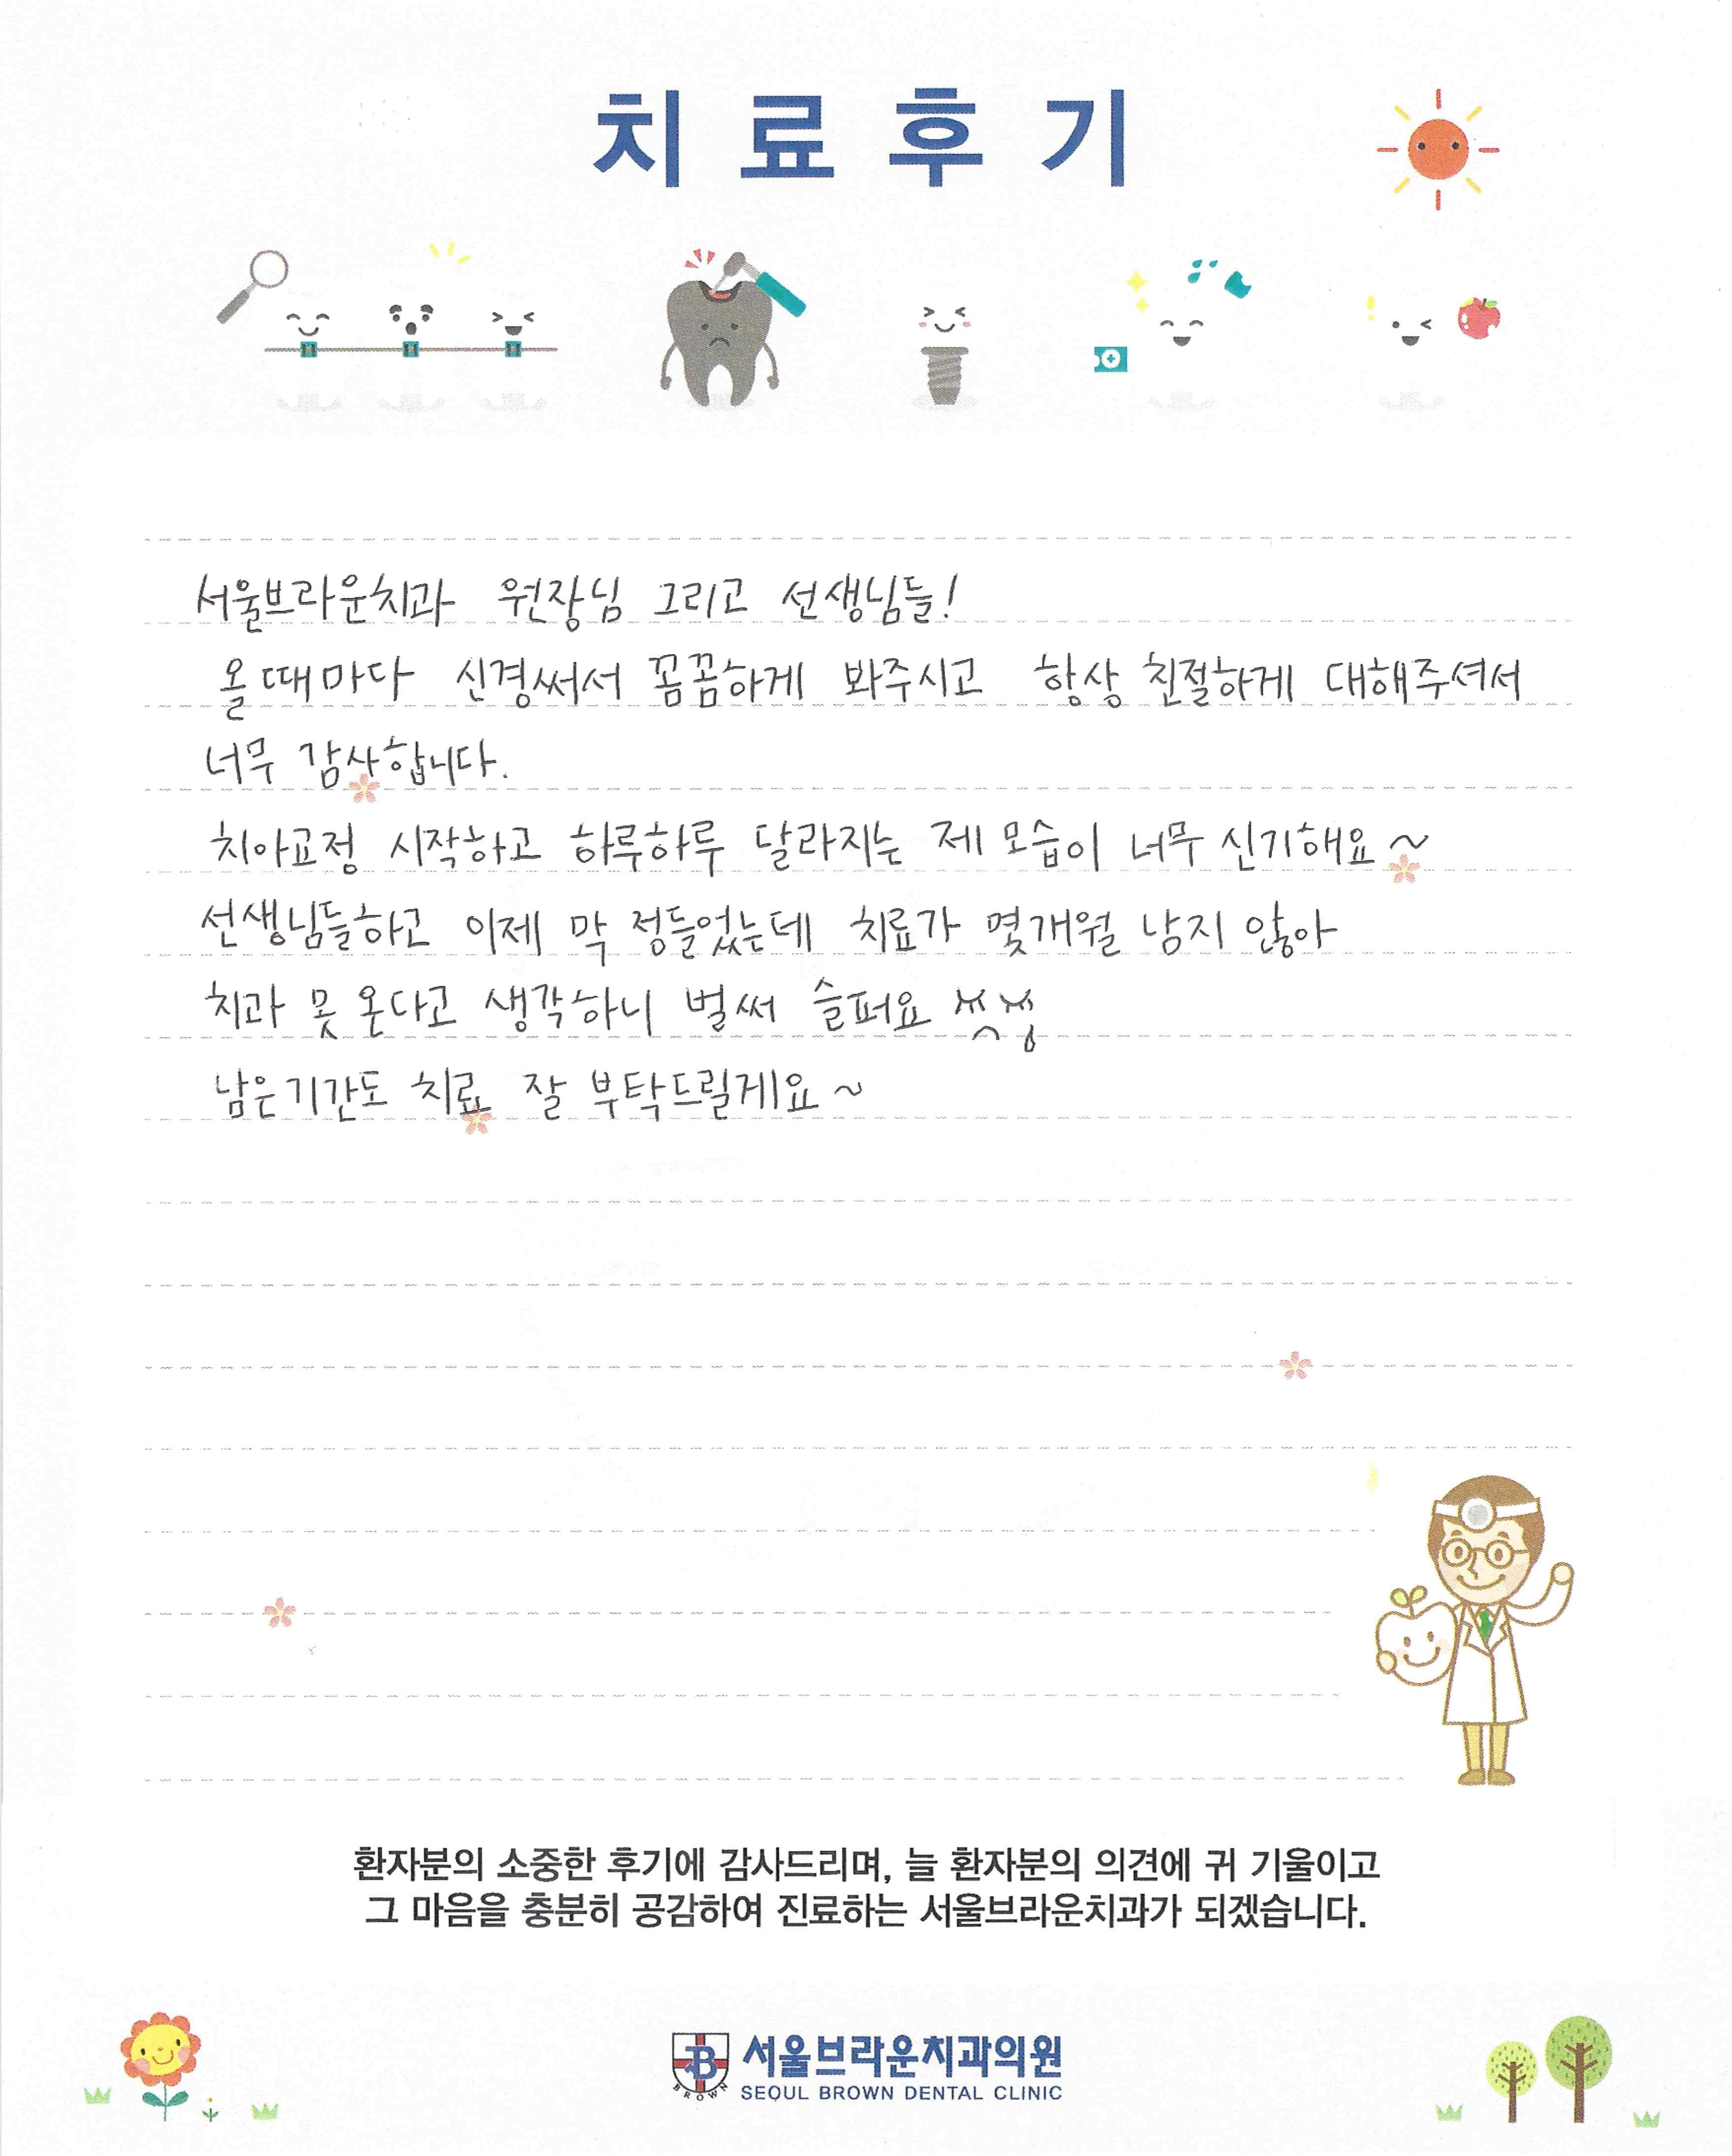 치료후기
서울브라운치과 원장님 그리고 선생님들!
올때마다 신경써서 꼼꼼하게 봐주시고 항상 친절하게 대해주셔서
너무 감사합니다.
치아교정 시작하고 하루하루 달라지는 제 모습이 너무 신기해요~
선생님들하고 이제 막 정들었는데 치료가 몇개월 남지 않아
치과 못 온다고 생각하니 벌써 슬퍼요
남은기간도 치료 잘 부탁드릴게요~
환자분의 소중한 후기에 감사드리며, 늘 환자분의 의견에 귀 기울이고
그 마음을 충분히 공감하여 진료하는 서울브라운치과가 되겠습니다.
B BROWN
서울브라운치과의원
SEOUL BROWN DENTAL CLINIC